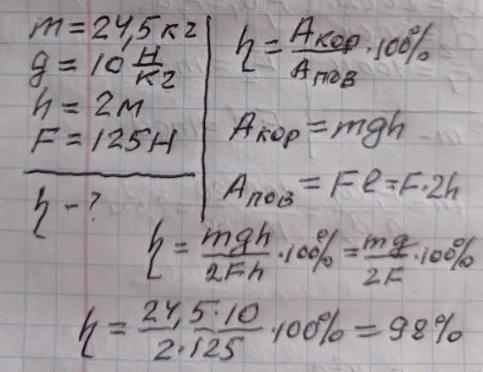 m = 24,5 кг
g = 10 Н/кг
h = 2 м
F = 125 Н
η - ?
η = Aкор/Aпов · 100%
Aкор = mgh
Aпов = Fl = F·2h
η = mgh/2Fh · 100% = mg/2F · 100%
η = 24,5·10/2·125 · 100% = 98%